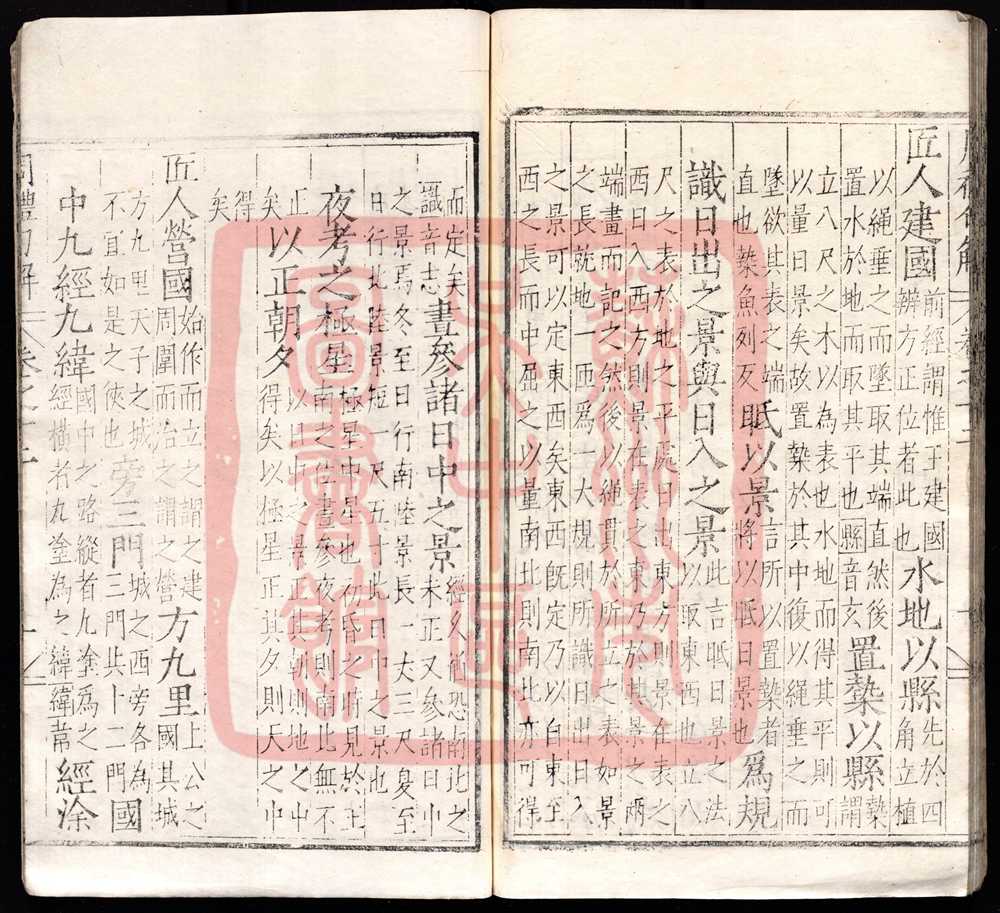 匠人建國
前經謂惟王建國
辨方正位者此也
水地以縣
先於四
角立植
以繩垂之而墜取其端直然後
置水於地而取其平也縣音玄
置槷以縣
槷
謂
立八尺之木以為表也水地而得其平則可
以量日景矣故置槷於其中復以繩垂之而
墜欲其表之端
直也槷魚列反
眂以景
言所以置槷者
將以眂日景也
為規
識日出之景與日入之景
此言眂日景之法
以取東西也立八
尺之表於地之平處日出東方則景在表之
西日入西方則景在表之東乃於其景之兩
端畫而記之然後以繩貫於所立之表如景
之長就地以定東西為一大規則所識日出日入
之景可以定東西矣東西既定乃以自東至
西之長而中屈之以量南北則南北亦可得
而定矣
識音志
晝參諸日中之景
經久猶恐南北之
未正又參諸日中
之景焉冬至日行南陸景長一丈三尺夏至
日行北陸景短一尺五寸此日中之景也
夜考之極星
極星中星也 昏之時見於
南之位晝參夜考則南北無不
正
矣
以正朝夕
以日中之景正其朝則地之中
得矣以極星正其夕則天之中
得
矣
匠人營國
始作而立之謂之建
周圍而治之謂之營
方九里
上公之
國其城
方九里天子之城
不宜如是之狹也
旁三門
城之西旁各為
三門共十二門
國
中九經九緯
國中之路縱者九塗為之
經橫者九塗為之緯緯常
經涂
周禮句解 卷之十二